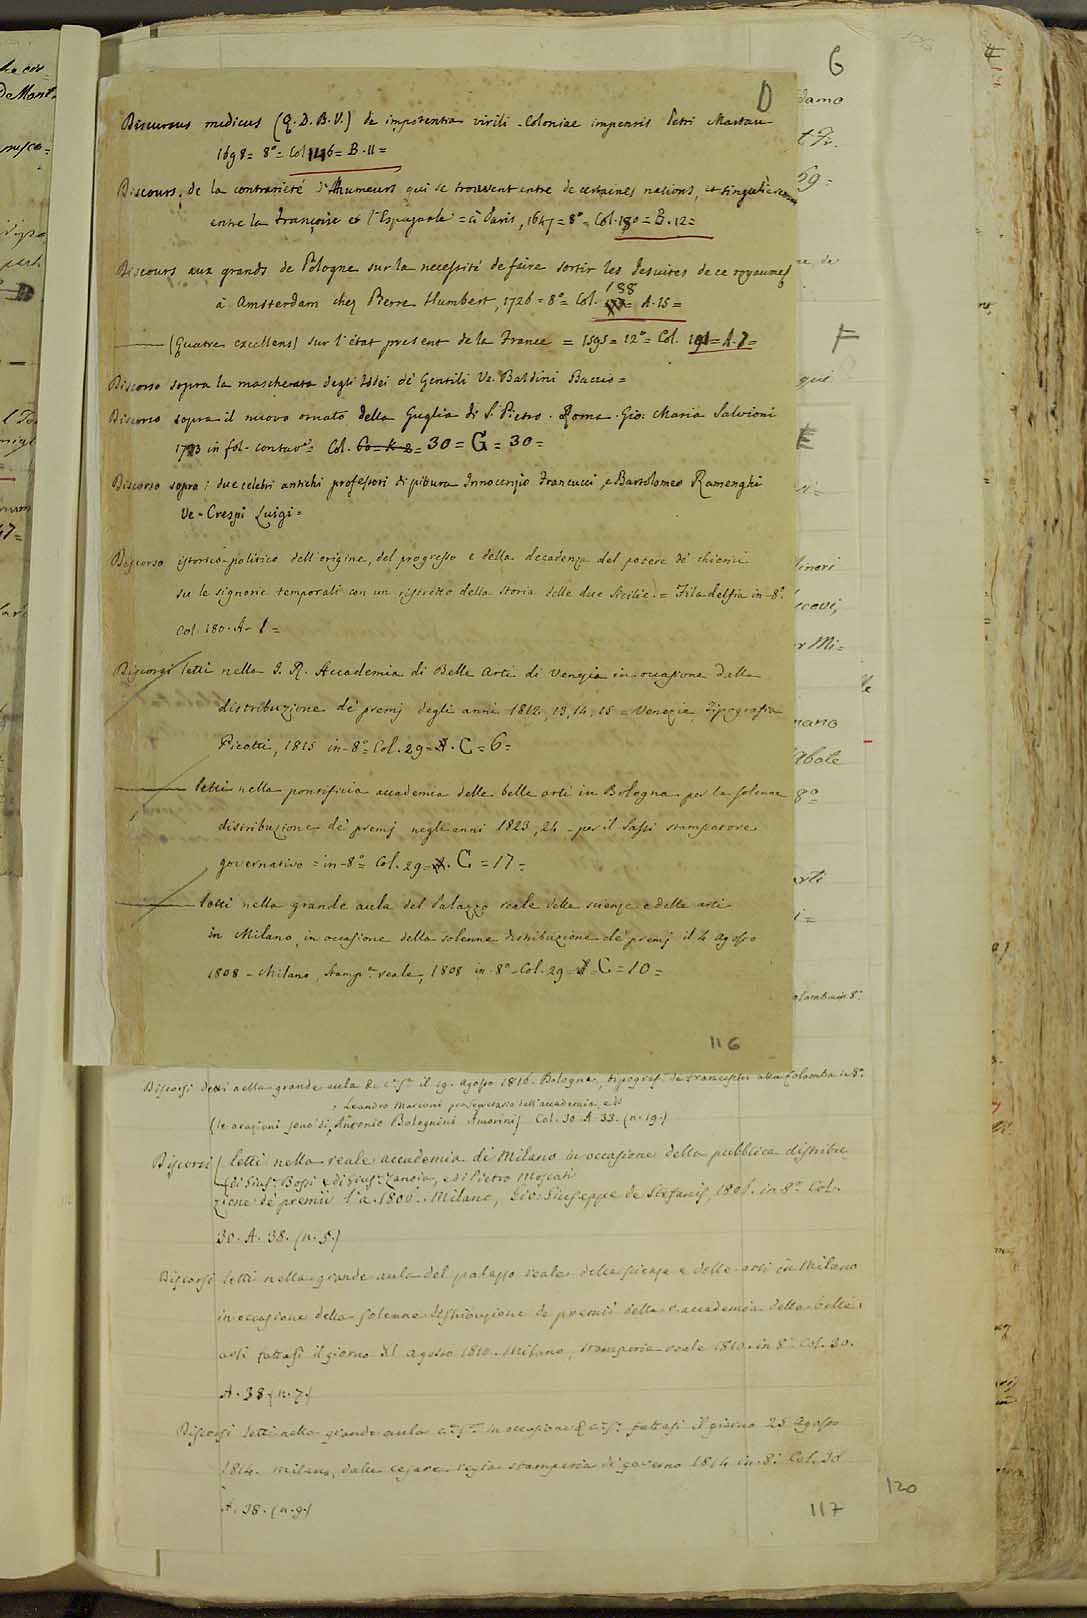 G
D
Discursus medicus (Q. D. B. V.) de impotentia virili - Coloniae impensis Petri Martau
1698 = 8° = Col 146 = B. 11 =
Discours, de la contrarieté d'humeurs qui se trouvent entre de certaines nations, et singulierem
entre la Françoise et l'Espagnole = à Paris, 1647 = 8° = Col. 180 = B. 12 =
Discours aux grands de Pologne sur la necessité de faire sortir les Jesuites de ce royaume
188
à Amsterdam chez Pierre Humbert, 1726 = 8° = Col. = A. 15 =
——— (Quatre excellens) sur l'état present de la France = 1595 = 12° = Col. = A. 7 =
F
Discorso sopra la mascherata degli Iddei de' Gentili Ve. Baldini Baccio =
Discorso sopra il nuovo ornato della Guglia di S. Pietro. Roma. Gio: Maria Salvioni
1723 in fol. con tav.e = Col. 60 = K 2 = 30 = G = 30 =
E
Discorso sopra i due celebri antichi professori di pittura Innocenzio Francucci, e Bartolomeo Ramenghi
Ve = Crespi Luigi =
Discorso istorico-politico dell'origine, del progresso e della decadenza del potere de' chierici
su le signorie temporali con un ristretto della storia delle due Sicilie = Filadelfia in-8°.
Col. 180. A. 1 =
Discorsi letti nella I. R. Accademia di Belle Arti di Venezia in occasione della
distribuzione de' premj degli anni 1812, 13, 14, 15 = Venezia, Tipografia
Picotti, 1815 in-8° = Col. 29 = C = 6 =
——— letti nella pontificia accademia delle belle arti in Bologna per la solenne
distribuzione de' premj negli anni 1823, 24 - per il Sassi stampatore
governativo = in-8° = Col. 29 = C = 17 =
——— letti nella grande aula del Palazzo reale delle scienze e delle arti
in Milano, in occasione della solenne distribuzione de' premj il 4 Agosto
1808 - Milano, Stamp.a reale, 1808 in-8° - Col. 29 = C = 10 =
116
Discorsi detti nella grande aula & c.a S.a il 19. Agosto 1816. Bologna, tipogref. de Franceschi alla Colomba in 8°
Leandro Marconi prosegretario dell'accademia, e di
(le orazioni sono di Antonio Bolognini Amorini) Col. 30 A 33. (n. 19.)
Discorsi letti nella reale accademia di Milano in occasione della pubblica distribu
(di Gius.e Bossi, di Gius.e Zanoia, e di Pietro Moscati
zione de' premii l'a. 1806. Milano, Gio: Giuseppe de Stefanis, 1806. in 8° Col.
30. A. 38. (n. 5.)
Discorsi letti nella grande aula del palazzo reale delle scienze e delle arti in Milano
in occasione della solenne distribuzione de premii della r. accademia delle belle
arti fattasi il giorno agosto 1810. Milano, stamperia reale 1810. in 8° Col. 30.
A. 38 (n. 7.)
Discorsi letti nella grande aula c.a S.a in occasione & c.a S.a fattasi il giorno 25 Agosto
1814. Milano, dalla cesarea regia stamperia di governo 1814 in 8° Col. 30
A. 38. (n. 9.)
117
120